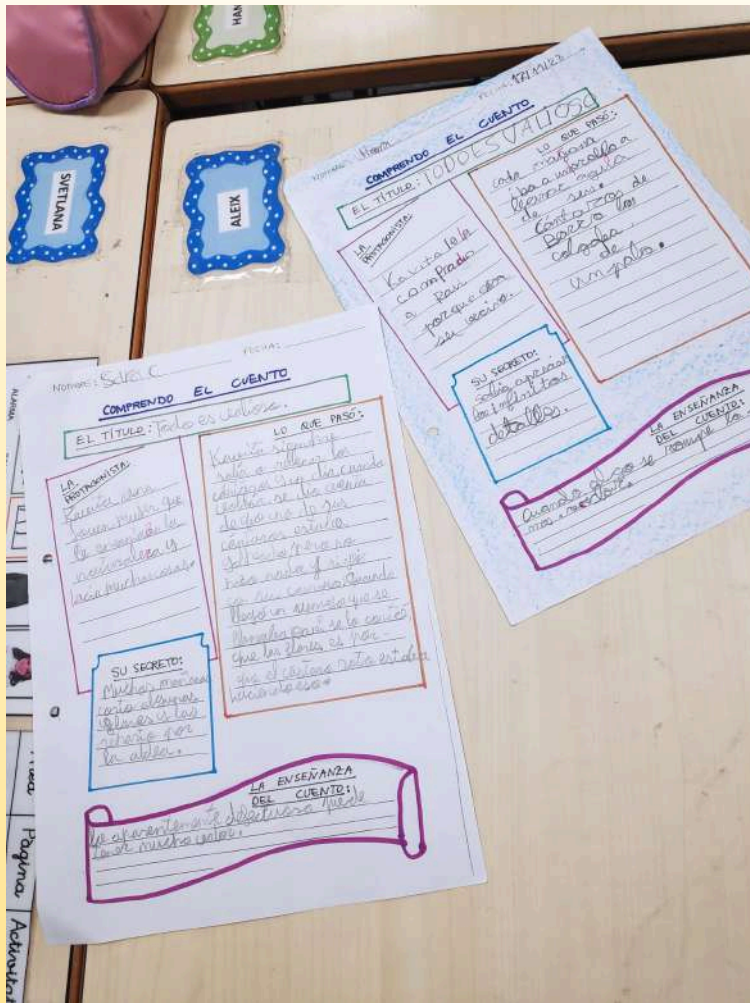 HAN
SVETLANA
ALEIX
NOMBRE:
FECHA:
COMPRENDO EL CUENTO
EL TÍTULO: TODO ES VALIOSO
LA PROTAGONISTA:
Kavita le ha
comprado
a Ravi
porque era
su vecino.
LO QUE PASÓ:
cada mañana
iba a
agua
de
cantaros de
Barro los
colgaba
de
un palo.
SU SECRETO:
sabía apreciar
los
detalles.
LA ENSEÑANZA
DEL CUENTO:
Cuando algo se rompe lo
NOMBRE: Sara C.
FECHA:
COMPRENDO EL CUENTO
EL TÍTULO: Todo es valioso.
LA
PROTAGONISTA:
Kavita era
joven mujer que
le encantaba la
naturaleza y
hacía muchas cosas.
LO QUE PASÓ:
Kavita siempre
salía a
y un día cuando
se dio cuenta
de que uno de sus
cántaros estaba
pero no
hizo nada y siguió
con su camino. Cuando
llegó un
que se
llamaba Ravi se lo contó,
que las flores es por-
que el cántaro roto estaba
haciendo eso.
SU SECRETO:
Muchas mañanas
algunas
flores y las
por
la aldea.
LA ENSEÑANZA
DEL CUENTO:
Lo aparentemente defectuoso puede
tener mucho valor.
Pagina
Activitat